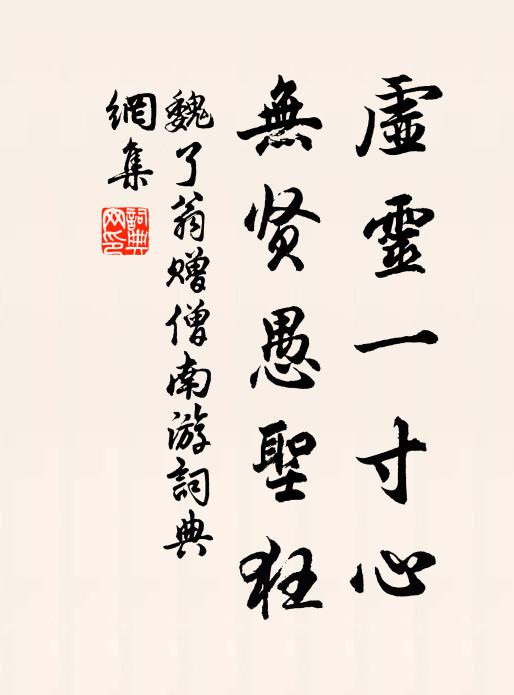 虛靈一寸心
無贤愚聖狂
魏了翁赠僧南游詞典
網集
詞典網印